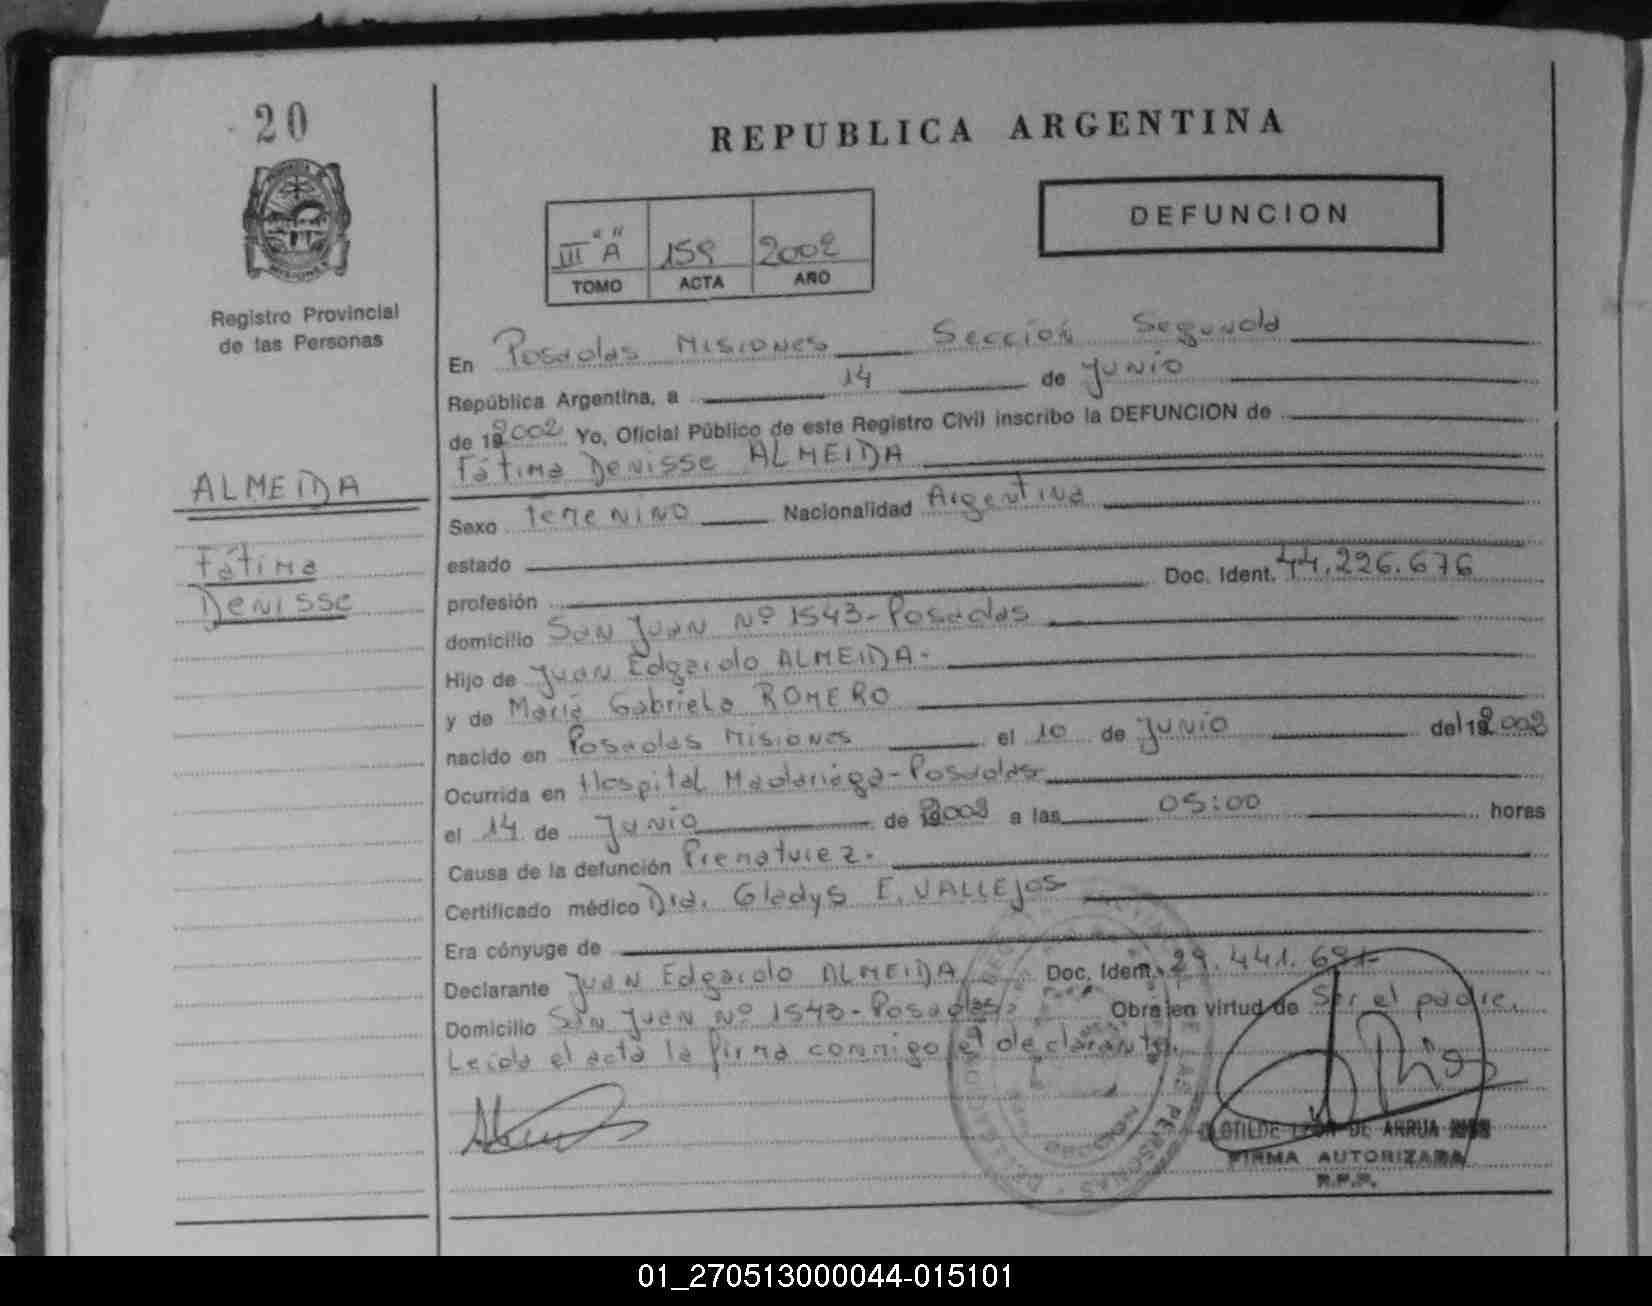 20
REPUBLICA ARGENTINA
DEFUNCION
III "A" 159 2002
TOMO ACTA AÑO
Registro Provincial
de las Personas
En Posadas Misiones Sección Segunda
República Argentina, a 14 de Junio
de 2002 Yo, Oficial Público de este Registro Civil inscribo la DEFUNCION de
Fátima Denisse ALMEIDA
ALMEIDA
Fátima
Denisse
Sexo femenino Nacionalidad Argentina
estado
profesión Doc. Ident. 44.226.676
domicilio San Juan Nº 1543-Posadas
Hijo de Juan Edgardo ALMEIDA.
y de María Gabriela ROMERO
nacido en Posadas Misiones el 10 de Junio del 2002
Ocurrida en Hospital Madariaga-Posadas
el 14 de Junio de 2002 a las 05:00 horas
Causa de la defunción Prematurez.
Certificado médico Dra. Gladys E. VALLEJOS
Era cónyuge de
Declarante Juan Edgardo ALMEIDA Doc. Ident. 29.441.691
Domicilio San Juan Nº 1543-Posadas. Obra en virtud de Ser el padre.
Leída el acta la firma conmigo el declarante.
CLOTILDE DE ARRUA
FIRMA AUTORIZADA
R.P.P.
01_270513000044-015101